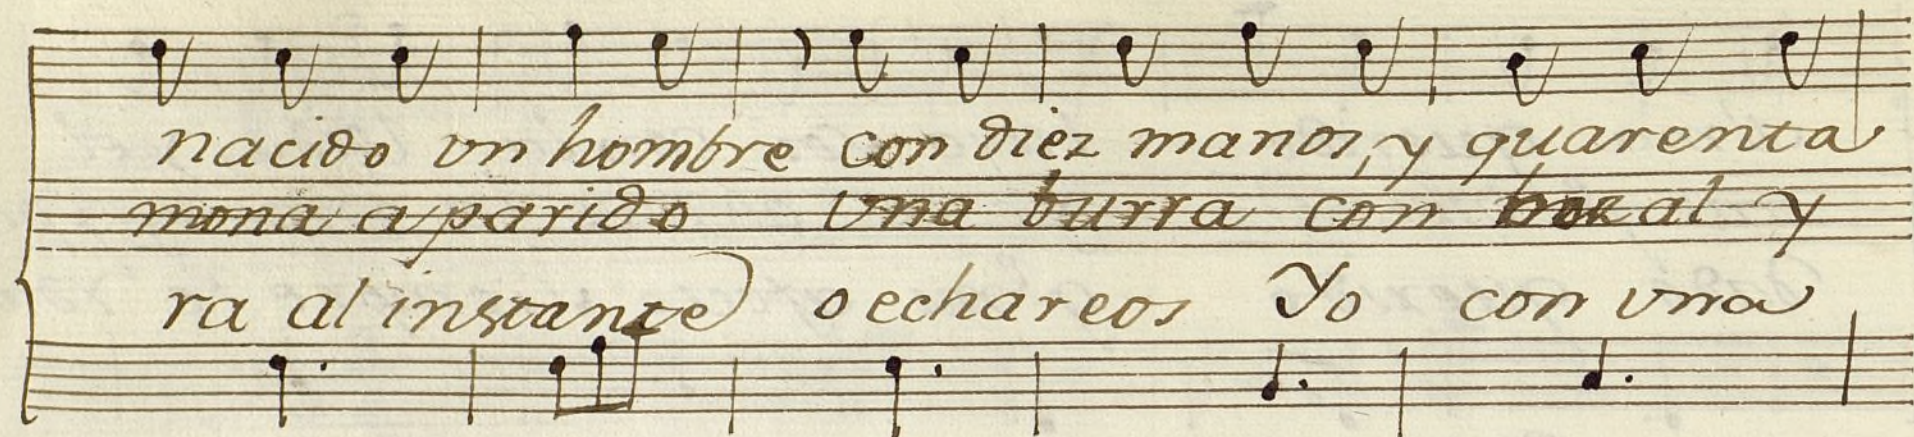 nacido vn hombre con diez manos, y quarenta
mona a parido vna burra con bozal y
ra al instante o echareos Yo con vna